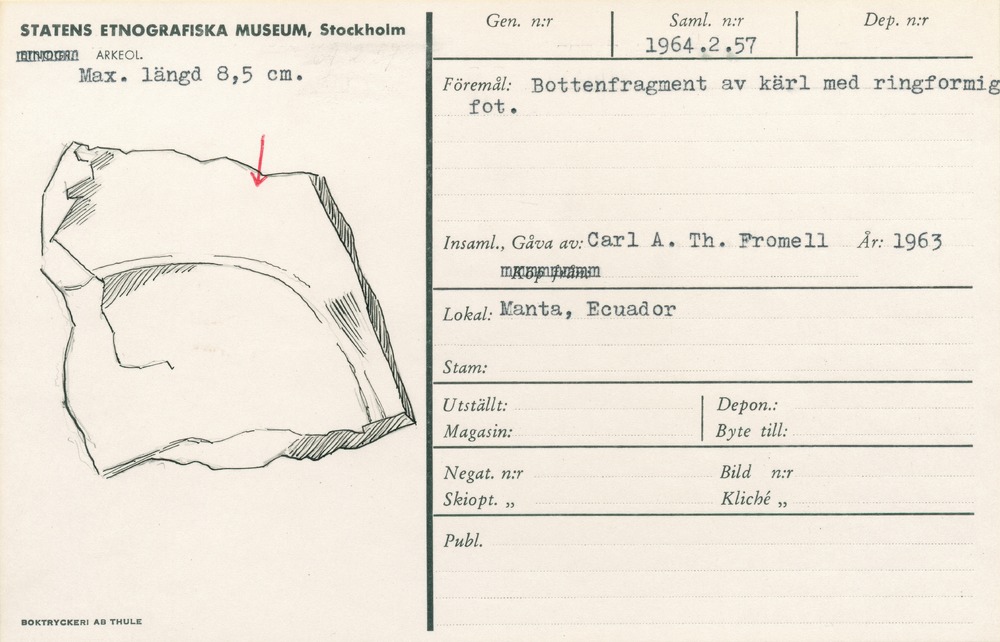 STATENS ETNOGRAFISKA MUSEUM, Stockholm
ARKEOL.
Max. längd 8,5 cm.
BOKTRYCKERI AB THULE
Gen. n:r Saml. n:r Dep. n:r
1964.2.57
Föremål: Bottenfragment av kärl med ringformig
fot.
Insaml., Gåva av: Carl A. Th. Fromell År: 1963
Köp från
Lokal: Manta, Ecuador
Stam:
Utställt: Depon.:
Magasin: Byte till:
Negat. n:r Bild n:r
Skiopt. „ Kliché „
Publ.